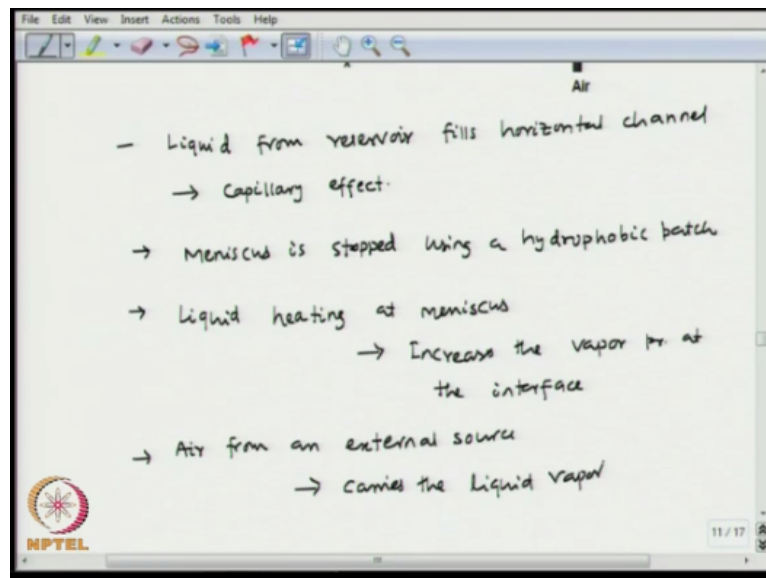 File Edit View Insert Actions Tools Help
Air
- Liquid from reservoir fills horizontal channel
→ Capillary effect.
→ Meniscus is stopped using a hydrophobic patch
→ Liquid heating at meniscus
→ Increase the vapor pr. at
the interface
→ Air from an external source
→ carries the liquid vapor
NPTEL
11 / 17